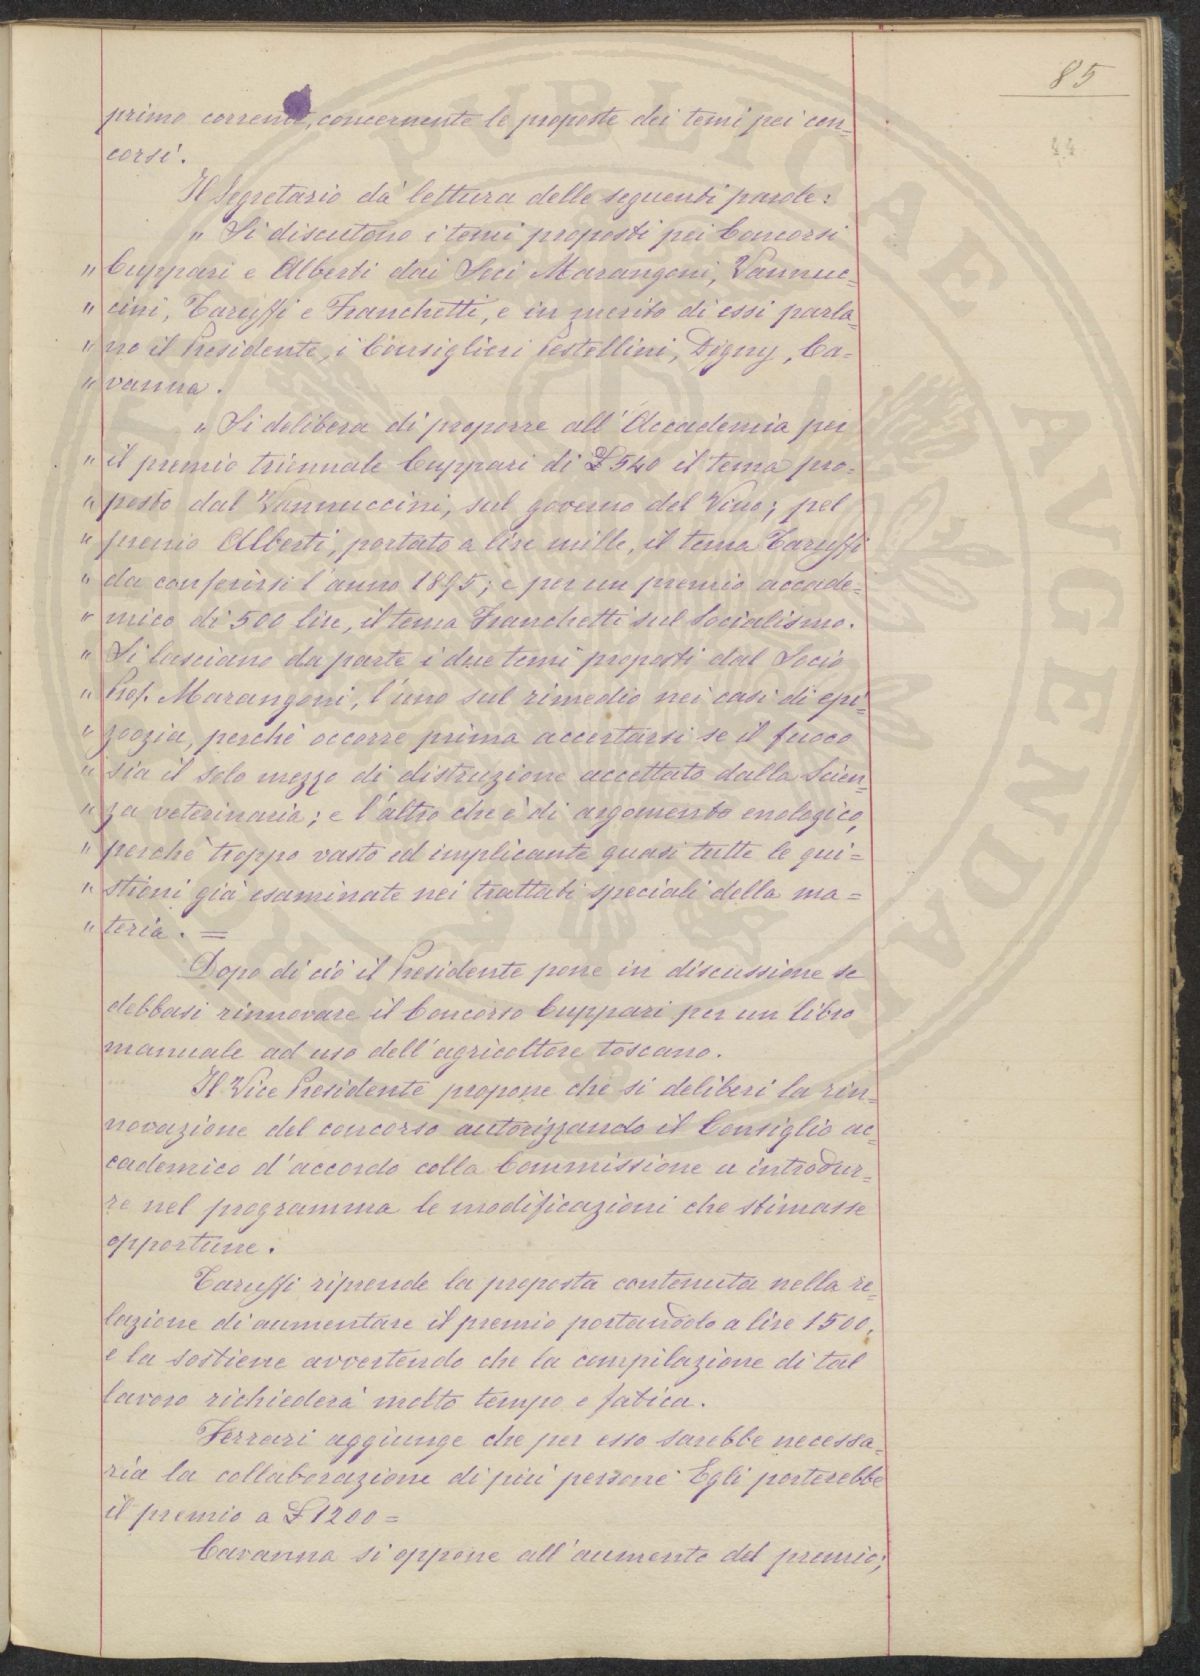 85
44
primo corrente, concernente le proposte dei temi pei con=
corsi.
Il Segretario dà lettura delle seguenti parole:
„ Si discutono i temi proposti pei Concorsi
„ Cuppari e Alberti dai Soci Marangoni, Vannuc=
„ cini, Taruffi e Franchetti, e in merito di essi parla=
„ no il Presidente, i Consiglieri Pestellini, Digny, Ca=
„ vanna.
„ Si delibera di proporre all'Accademia per
„ il premio triennale Cuppari di £ 540 il tema pro=
„ posto dal Vannuccini, sul governo del Vino; pel
„ premio Alberti, portato a lire mille, il tema Taruffi
„ da conferirsi l'anno 1895; e per un premio accade=
„ mico di 500 lire, il tema Franchetti sul Socialismo.
„ Si lasciano da parte i due temi proposti dal Socio
„ Prof. Marangoni, l'uno sul rimedio nei casi di epi=
„ zoozia, perchè occorre prima accertarsi se il fuoco
„ sia il solo mezzo di distruzione accettato dalla Scien=
„ za veterinaria; e l'altro che è di argomento enologico,
„ perchè troppo vasto ed implicante quasi tutte le qui=
„ stioni già esaminate nei trattati speciali della ma=
„ teria. =
Dopo di ciò il Presidente pone in discussione se
debbasi rinnovare il Concorso Cuppari per un libro
manuale ad uso dell'agricoltore toscano.
Il Vice Presidente propone che si deliberi la rin=
novazione del concorso autorizzando il Consiglio ac=
cademico d'accordo colla Commissione a introdur=
re nel programma le modificazioni che stimasse
opportune.
Taruffi riprende la proposta contenuta nella re=
lazione di aumentare il premio portandolo a lire 1500,
e la sostiene avvertendo che la compilazione di tal
lavoro richiederà molto tempo e fatica.
Ferrari aggiunge che per esso sarebbe necessa=
ria la collaborazione di più persone. Egli porterebbe
il premio a £ 1200 =
Cavanna si oppone all'aumento del premio;
PUBLICAE
AVGENDAE